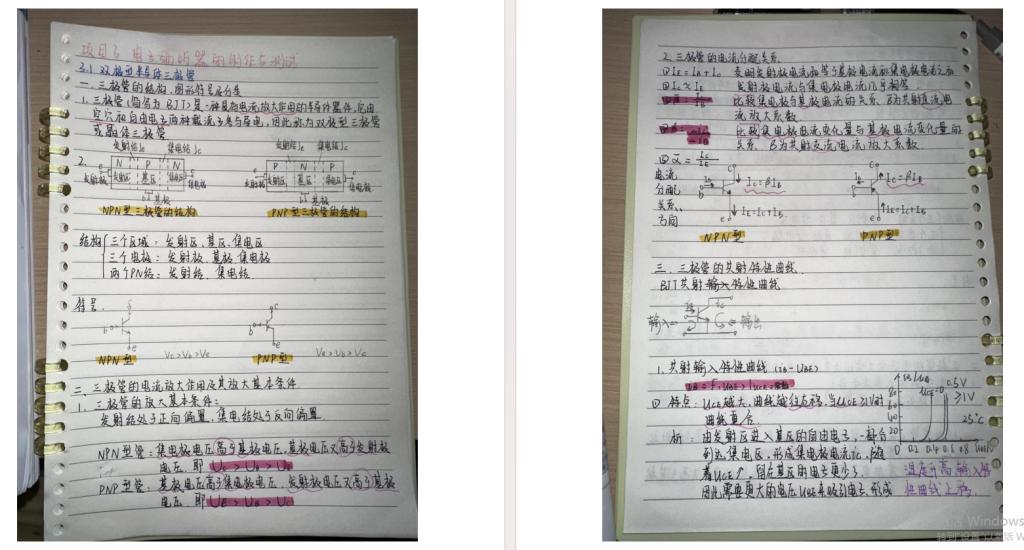 项目3 助听器的制作与测试
3.1 双极型半导体三极管
一、三极管的结构、图形符号及分类
1. 三极管(简写为BJT)是一种具有电流放大作用的半导体器件,它由
空穴和自由电子两种载流子参与导电,因此称为双极型三极管
或晶体三极管
发射结Je 集电结Jc 发射结Je 集电结Jc
2.
N P N P N P
e 发射区 基区 集电区 c e 发射区 基区 集电区 c
发射极 集电极 发射极 集电极
b 基极 b 基极
NPN型三极管的结构 PNP型三极管的结构
结构 三个区域:发射区、基区、集电区
三个电极:发射极、基极、集电极
两个PN结:发射结、集电结.
符号
c c
b b
e e
NPN型 Vc>Vb>Ve PNP型 Ve>Vb>Vc
二、三极管的电流放大作用及其放大基本条件
1. 三极管的放大基本条件:
发射结处于正向偏置,集电结处于反向偏置.
NPN型管:集电极电压高于基极电压,基极电压又高于发射极
电压,即 Uc>UB>UE
PNP型管:基极电压高于集电极电压,发射极电压又高于基极
电压,即 UE>UB>UC
2. 三极管的电流分配关系.
① IE=IB+IC 表明发射极电流和等于基极电流和集电极电流之和
② IC≈IE 发射极电流与集电极电流几乎相等
比较集电极与基极电流的关系,β为共射直流电
流放大系数.
比较集电极电流变化量与基极电流变化量的
关系,β为共射交流电流放大系数
电流
分配
关系
方向
IC=βIB IC=βIB
IE=IC+IB IE=IC+IB
NPN型 PNP型
三、三极管的共射特性曲线.
BJT共射输入特性曲线
输入 输出
1. 共射输入特性曲线 (iB-UBE)
特点:UCE越大,曲线越往右移,当UCE≥1V时
曲线重合.
析:由发射区进入基区的自由电子,一部分
到达集电区,形成集电极电流Ic,随
着UCE↑,留在基区的电子更少,
因此需要更大的电压UBE来吸引电子,形成
UCE=0 0.5V
≥1V
25℃
80
60
40
20
0 0.2 0.4 0.6 0.8
温度升高输入特
性曲线左移.
Windows